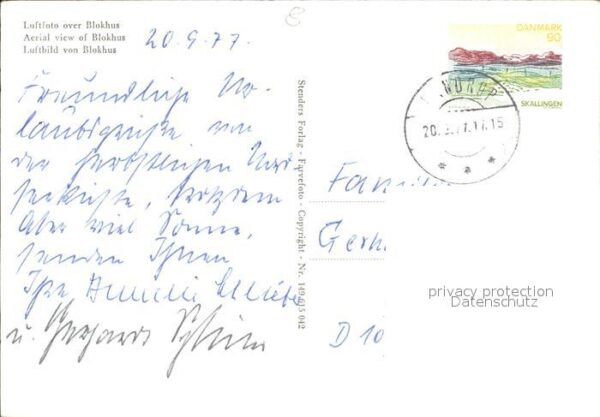 Luftfoto over Blokhus
Aerial view of Blokhus
Luftbild von Blokhus
20.9.77.
Freundliche Ur-
laubsgrüße von
der herbstlichen Nord
seeküste, trotzdem
Aber viel Sonne,
senden Ihnen
Ihre Annelie
u. Gerhard
Stenders Forlag - Farvefoto - Copyright - Nr. 149 615 042
DANMARK
90
SKALLINGEN
20. 9.77.17.15
Fam
Gerh
D 10
privacy protection
Datenschutz